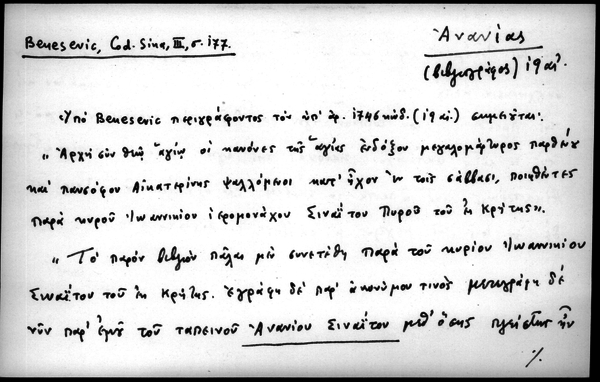 Benesevic, Cod. Sina, III, σ. 177.
Ἀνανίας
(βιβλιογράφος) 19 αἰ.
Ὑπό Benesevic περιγράφοντος τόν ὑπ' ἀρ. 1746 κώδ. (19 αἰ.) σημειοῦται·
"Ἀρχή σύν θεῷ ἁγίῳ οἱ κανόνες τῆς ἁγίας ἐνδόξου μεγαλομάρτυρος παρθένου
καί πανσόφου Αἰκατερίνης ψαλλόμενοι κατ' ἦχον ἐν τοῖς σάββασι, ποιηθέντες
παρά κυροῦ Ἰωαννικίου ἱερομονάχου Σιναΐτου τοῦ ἐκ Κρήτης".
"Τό παρόν βιβλίον πάλαι μέν συνετέθη παρά τοῦ κυρίου Ἰωαννικίου
Σιναΐτου τοῦ ἐκ Κρήτης. Ἐγράφη δέ παρ' ἀνωνύμου τινός μετεγράφη δέ
νῦν παρ' ἐμοῦ τοῦ ταπεινοῦ Ἀνανίου Σιναΐτου μεθ' ὅσης πλείστης ἦν
./.